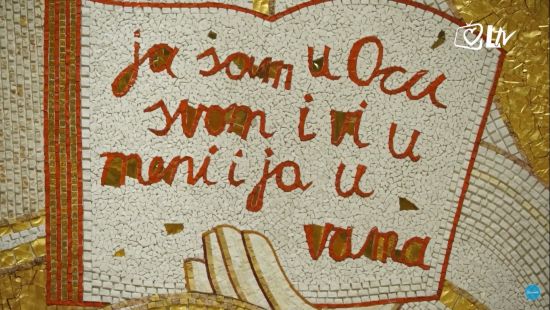 ja sam u Ocu
svom i vi u
meni i ja u
vama
Ltv